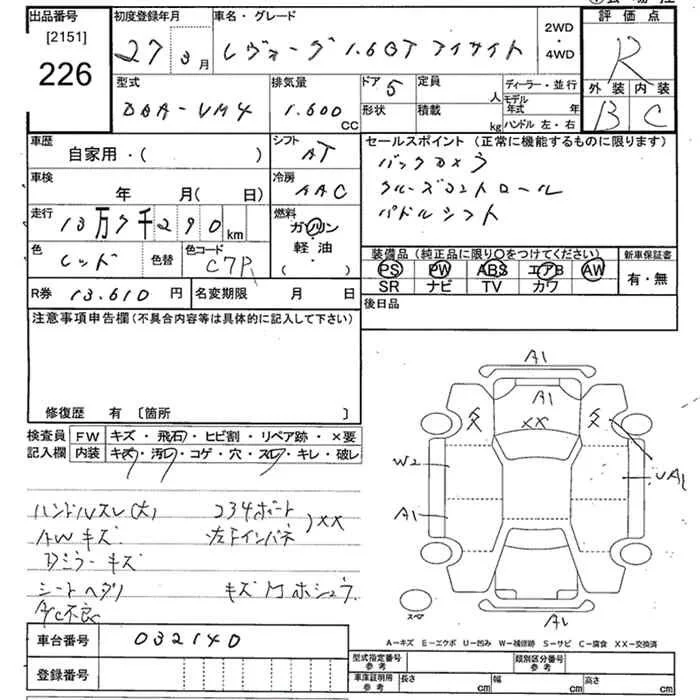 出品番号
[2151]
226
初度登録年月
27年3月
車名・グレード
レヴォーグ 1.6GT アイサイト
2WD
・
4WD
評価点
R
外装 内装
B C
型式
DBA-VM4
排気量
1.600 CC
ドア 5
形状
定員 人
積載 kg
ディーラー・並行
モデル年式 年
ハンドル 左・右
車歴
自家用・( )
シフト
AT
セールスポイント (正常に機能するものに限ります)
バックカメラ
クルーズコントロール
パドルシフト
車検
年 月( 日)
冷房
AAC
走行
13万7千290km
燃料
ガソリン
・
軽油
( ・ )
色
レッド
色替
色コード
C7P
装備品 (純正品に限り○をつけてください)
PS PW ABS エアB AW
SR ナビ TV カワ
新車保証書
有・無
R券 13.610 円
名変期限 月 日
後日品
注意事項申告欄 (不具合内容等は具体的に記入して下さい)
修復歴 有 〔箇所 〕
検査員記入欄
FW キズ・飛石・ヒビ割・リペア跡・×要
内装 キズ・汚レ・コゲ・穴・スレ・キレ・破レ
ハンドルスレ(大)
AWキズ
Dミラーキズ
シートヘタリ
A/C不良
コネ4ポート
左下インパネ
XX
A1
A1
XX
W2
A1
UA1
A1
スペア
A－キズ E－エクボ U－凹み W－補修跡 S－サビ C－腐食 XX－交換済
車台番号 032140
登録番号
型式指定番号 参考
類別区分番号 参考
車庫証明用 参考
長さ cm
幅 cm
高さ cm